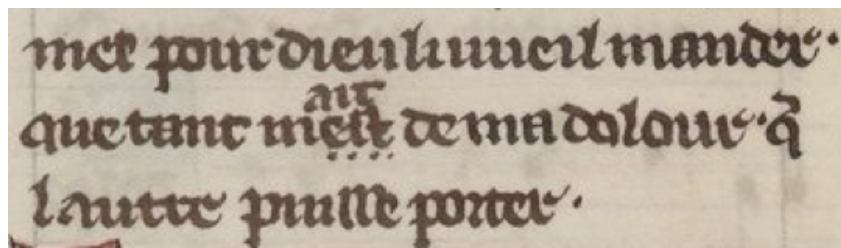 met pour dieu li uueil mander·
ait
que tant mest de ma dolour·q̃
lautre puisse porter·